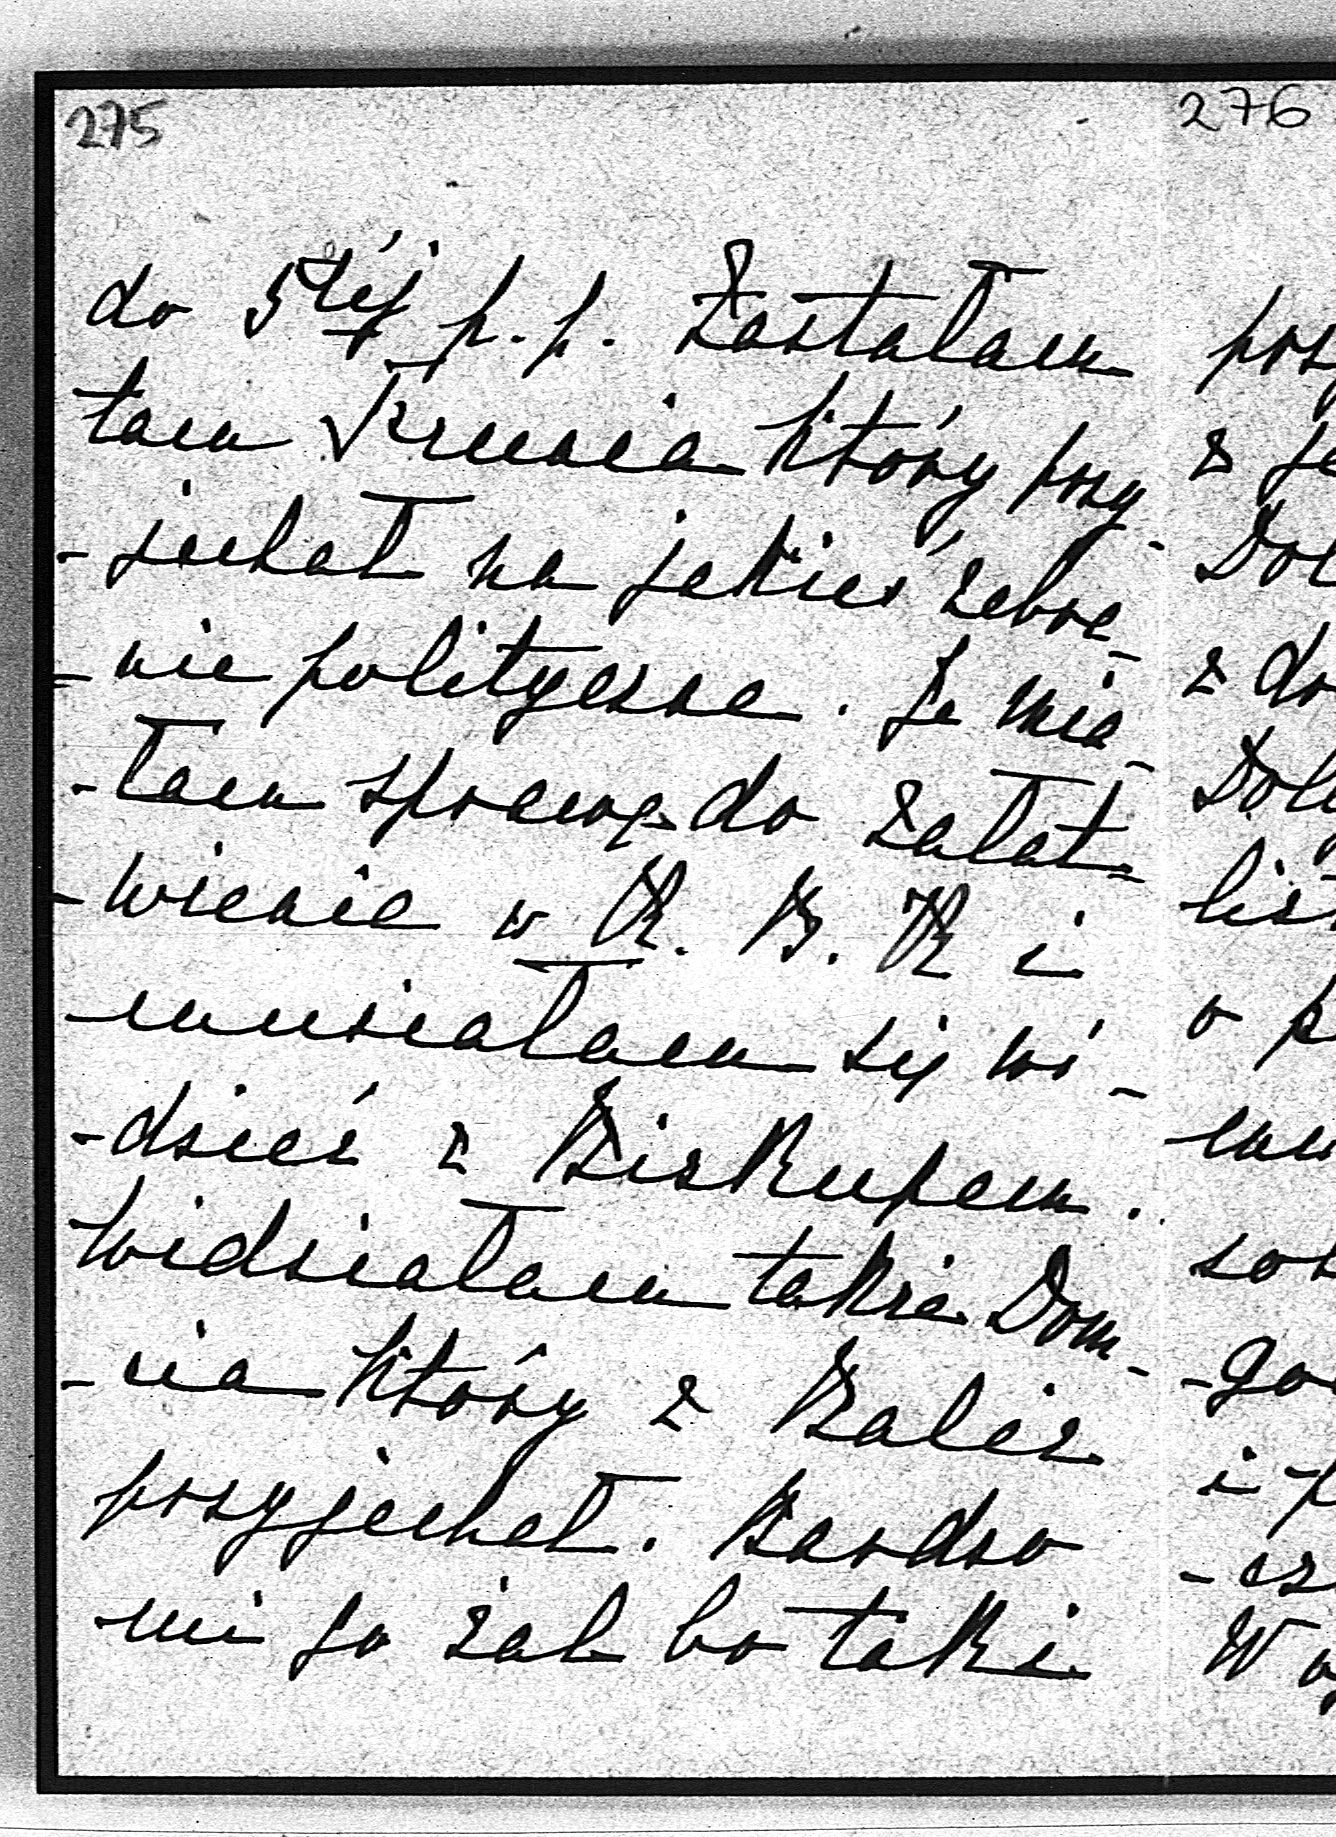 275
do 5téj p. p. Zastałam
tam Krunia który przy-
-jechał na jakieś zebra-
-nie polityczne. Ja mia-
-łam sprawę do załat-
-wienia w R. B. R i
musiałam się wi-
-dzieć z Biskupem.
Widziałam także Dom-
-nia który z Balic
przyjechał. Bardzo
mi go żal bo taki
276
z
Dol
z do
o
i
W